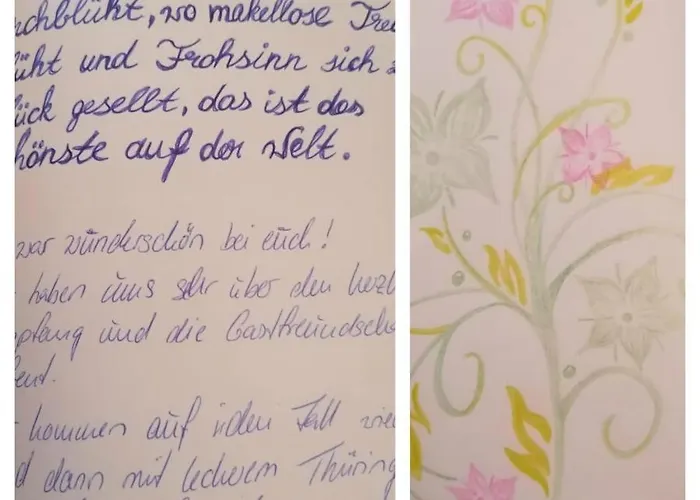 rchblüht, wo makellose Treu
üht und Frohsinn sich z
ück gesellt, das ist das
hönste auf der Welt.
war wünderschön bei eüch!
haben üns sehr über den herzl
pfang und die Gastfreündscha
feut.
kommen auf jeden Fall wie
d dann mit leckerem Thüring